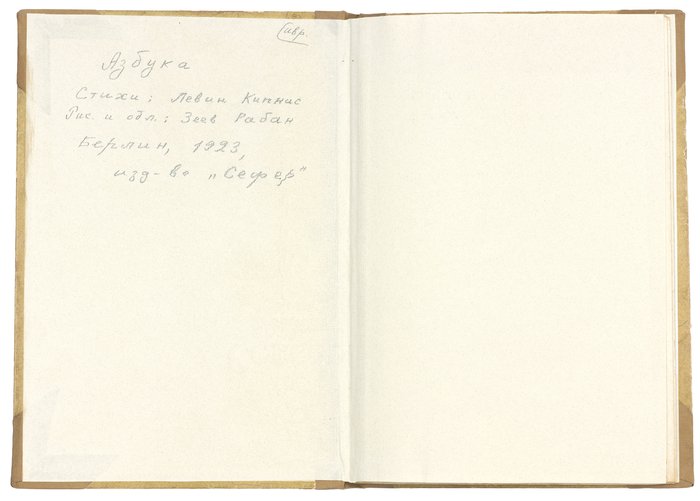 ивр.
Азбука
Стихи; Левин Кипнис
Рис. и обл.; Зеев Рабан
Берлин, 1923,
изд-во „Сефер"